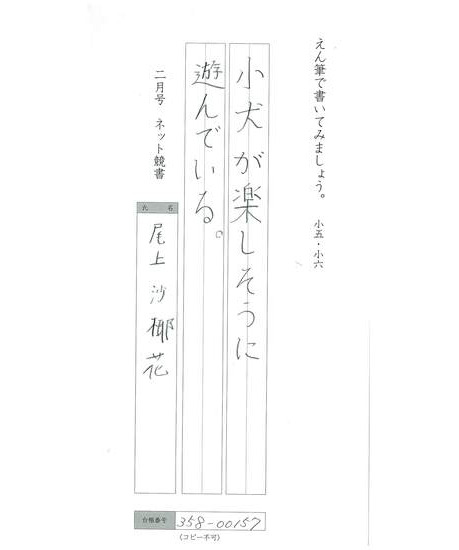 えん筆で書いてみましょう。 小五・小六
小犬が楽しそうに
遊んでいる。
二月号 ネット競書
氏名
尾上 沙椰花
会員番号 358-00157
(コピー不可)